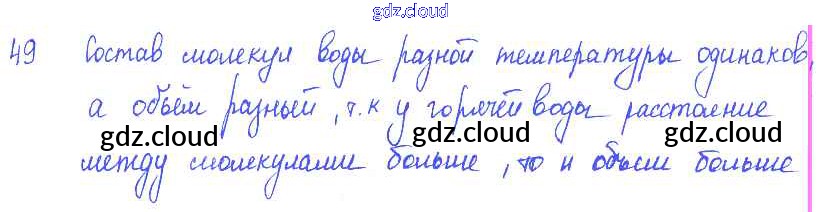 gdz.cloud
49 Состав молекул воды разной температуры одинаков,
а объём разный, т.к у горячей воды расстояние
gdz.cloud gdz.cloud gdz.cloud
между молекулами больше, то и объем больше